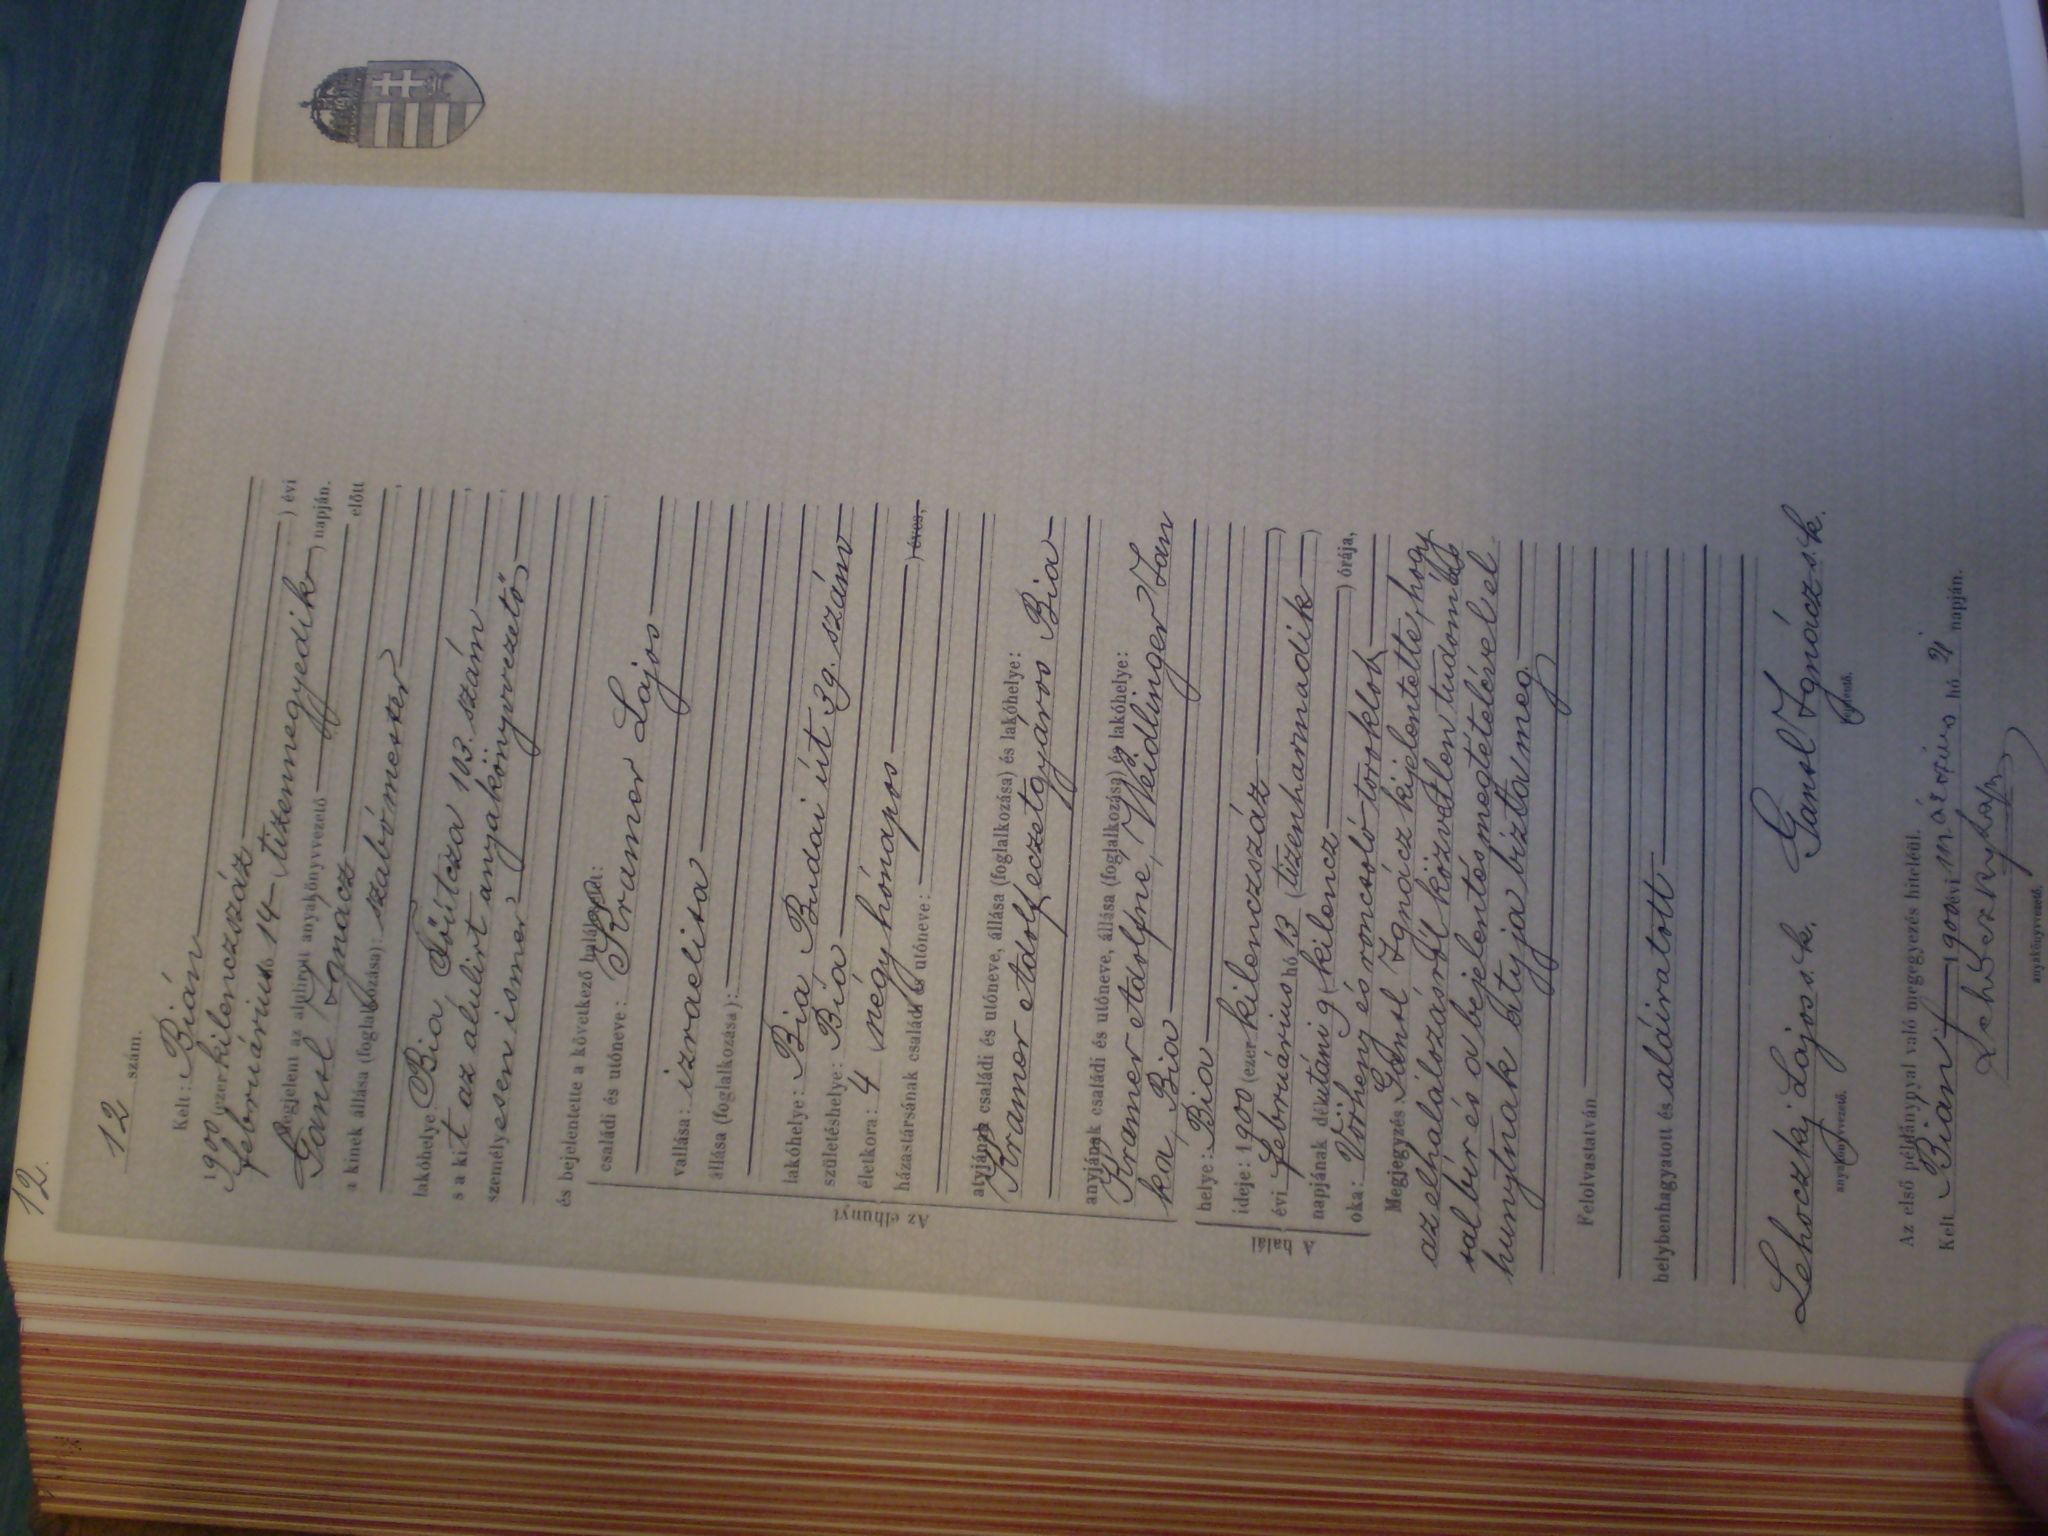 12.
12 szám.
Kelt: Bián
1900 (ezer kilenczszáz
) évi
februárius hó 14 (tizennegyedik) napján.
Megjelent az alulirt anyakönyvvezető előtt
Gansl Ignácz
a kinek állása (foglalkozása): szabómester,
lakóhelye: Bia Főútcza 103. szám,
s a kit az alulirt anyakönyvvezető,
személyesen ismer
és bejelentette a következő halálesetet:
családi és utóneve: Kramer Lajos
vallása: izraelita
állása (foglalkozása):
lakóhelye: Bia, Budai út 39. szám
születéshelye: Bia
életkora: 4 (négy hónapos) éves,
házastársának családi és utóneve:
Az elhunyt
atyjának családi és utóneve, állása (foglalkozása) és lakóhelye:
Kramer Adolf eczetgyáros Bia
anyjának családi és utóneve, állása (foglalkozása) és lakóhelye:
Kramer Adolfné, Weidlinger Jan
ka, Bia
A halál
helye: Bia
ideje: 1900 (ezer kilenczszáz
)
évi februárius hó 13 (tizenharmadik)
napjának délutáni 9 (kilencz) órája,
oka: Vörheny és roncsoló toroklob
Megjegyzés Gansl Ignácz kijelentette, hogy
az elhalálozásról közvetlen tudomás
sal bír és a bejelentés megtételével el
hunytnak atyja bízta meg.
Felolvastatván
helybenhagyatott és aláíratott
Lehoczky Lajos s.k. Gansl Ignácz s.k.
anyakönyvvezető. bejelentő.
Az első példánnyal való megegyezés hiteléül.
Kelt Bián 1900 évi márczius hó 4 napján.
Lehoczky Lajos
anyakönyvvezető.